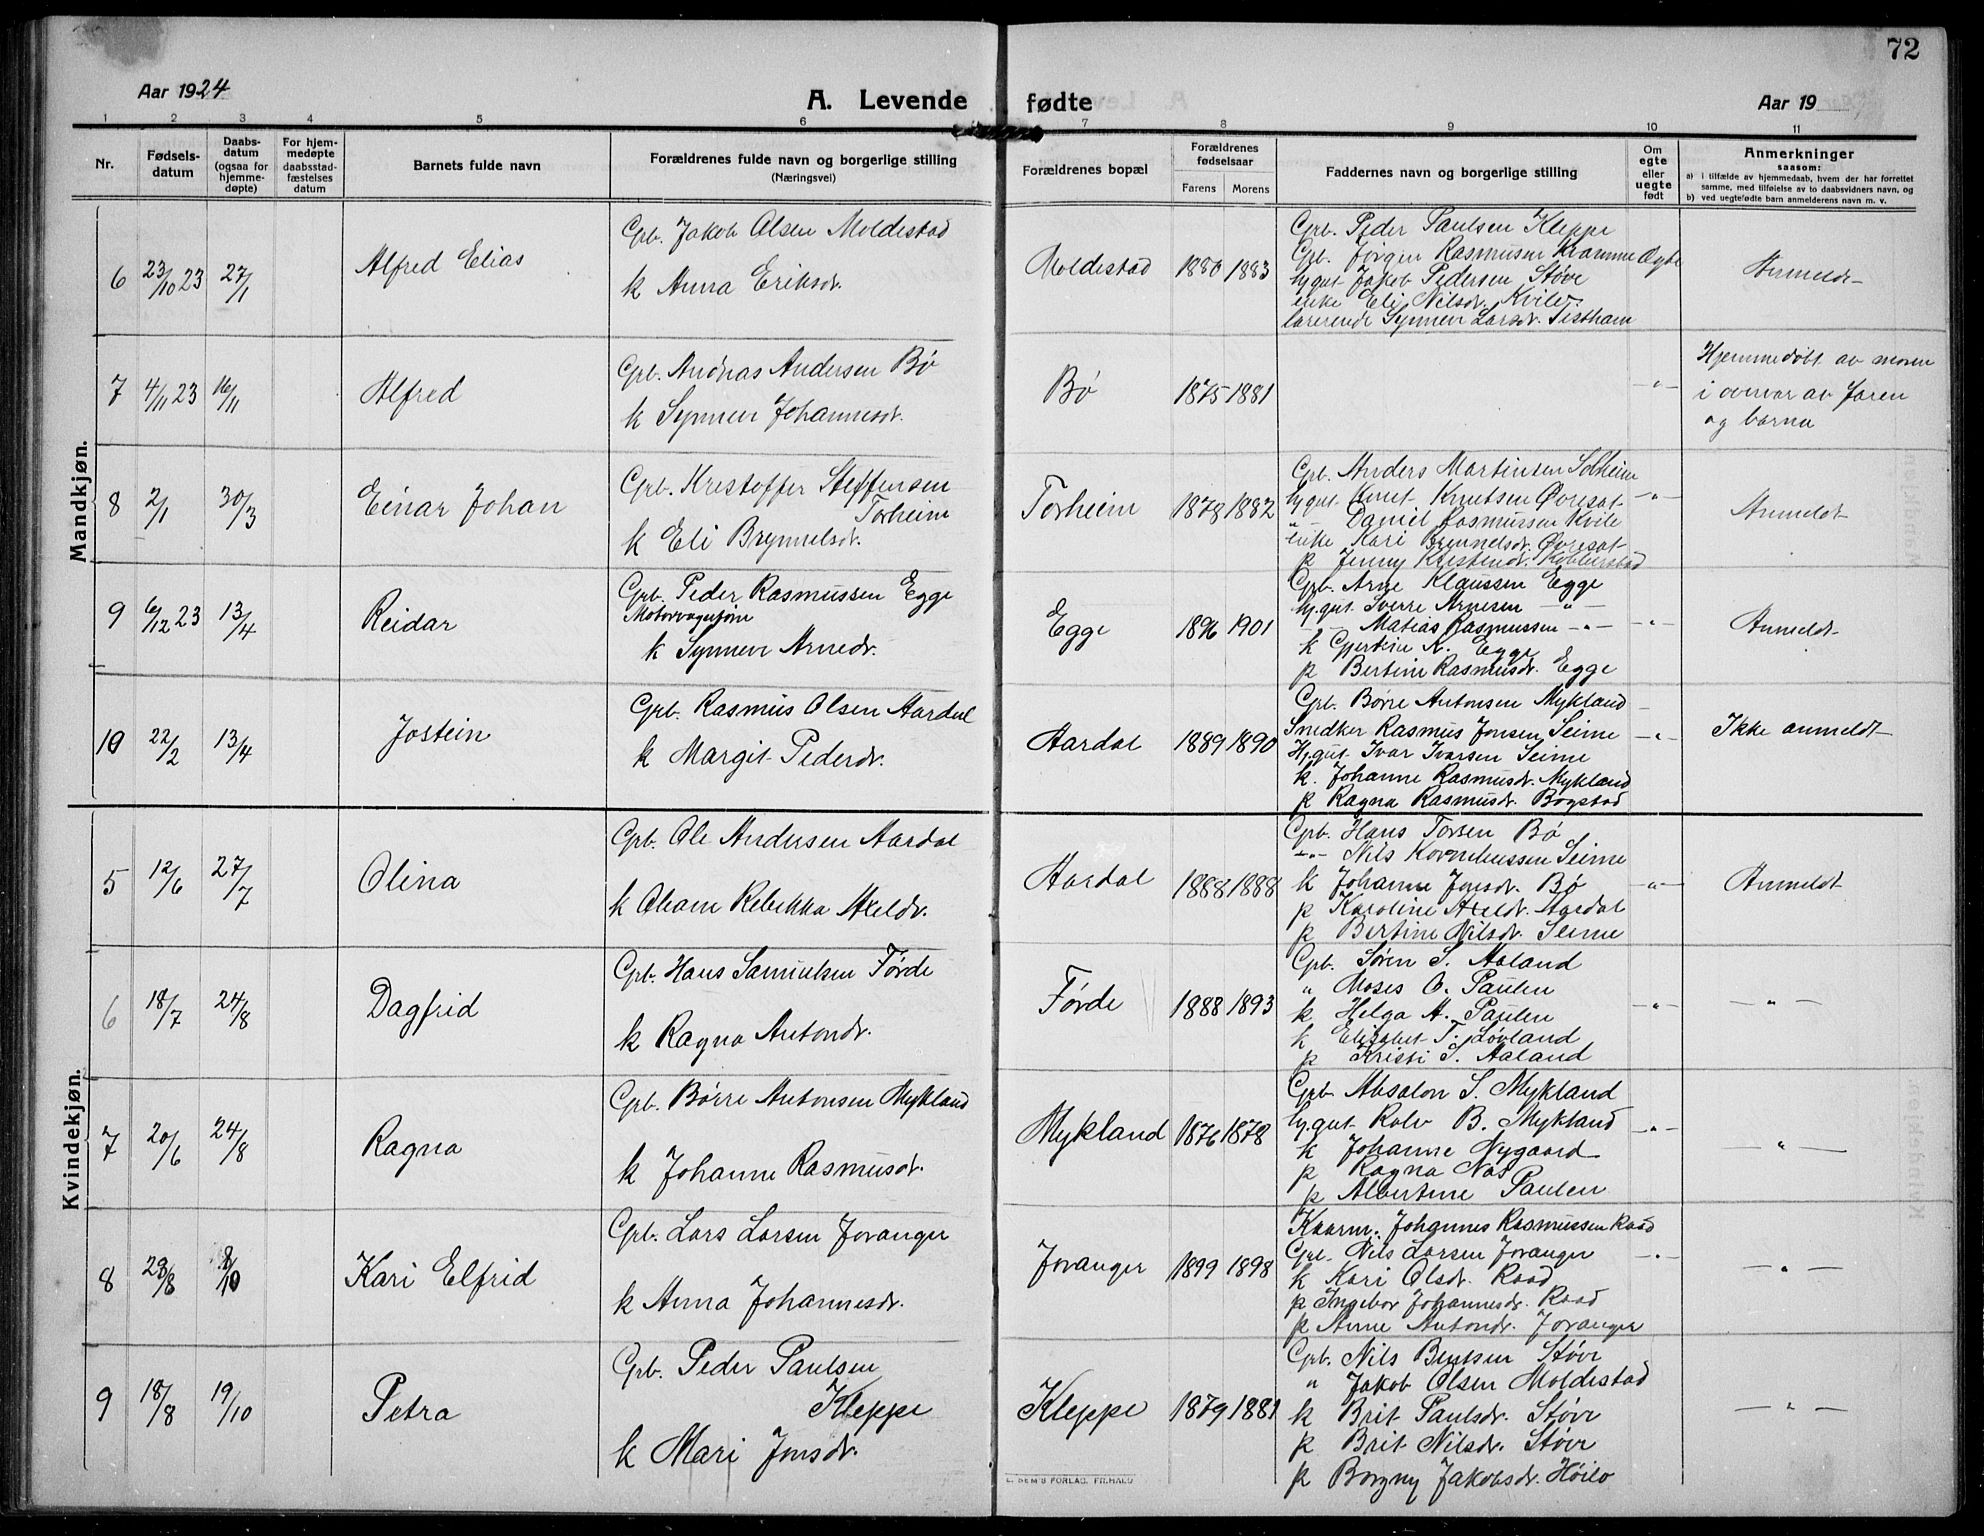 72
Aar 1924
A. Levende fødte
Aar 19
1 2 3 4 5 6 7 8 9 10 11
Nr.
Fødsels-
datum
Daabs-
datum
(ogsaa for
hjemme-
døpte)
For hjem-
medøpte
daabsstad-
fæstelses
datum
Barnets fulde navn
Forældrenes fulde navn og borgerlige stilling
(Næringsvei)
Forældrenes bopæl
Forældrenes
fødselsaar
Farens Morens
Faddernes navn og borgerlige stilling
Om
egte
eller
uegte
født
Anmerkninger
saasom:
a) i tilfælde av hjemmedaab, hvem der har forrettet
samme, med tilføielse av to daabsvidners navn, og
b) ved uegtefødte barn anmelderens navn m. v.
Mandkjøn.
6 23/10 23 27/1 Alfred Elias
Grb. Jakob Olsen Moldestad
k Anna Eriksdr.
Moldestad 1880 1883
Grb. Peder Paulsen Kleppe
Grb. Jørgen Rasmussen Kvamme
Ungut Jakob Pedersen Støve
enke Eli Nilsdr. Kvile
lærerinde Synneve Larsdr. Tistham
Egte
Anmeldt
7 4/11 23 16/11 Alfred
Grb. Andreas Andersen Bø
k Synneve Johannesdr.
Bø 1875 1881
-"-
Hjemmedøbt av moren
i overvær av faren
og barna
8 2/1 30/3 Einar Johan
Grb. Kristoffer Steffensen
Torheim
k Eli Brynnelsdr.
Torheim 1878 1882
Grb. Anders Martinsen Solheim
Ungut Knut Knutsen Øvresat
-"- Daniel Rasmussen Kvile
enke Kari Brynnelsdr. Øvresat
p Jenny Kristendr. Kobberstad
-"-
Anmeldt
9 6/12 23 13/4 Reidar
Grb. Peder Rasmussen Egge
k Synneve Arnedr.
Egge 1896 1901
Grb. Arne Klaussen Egge
Ungut Sverre Arnesen -"-
-"- Matias Rasmussen -"-
k Gjertine A. Egge
p Bertine Rasmusdr. Egge
-"-
Anmeldt
10 22/2 13/4 Jostein
Grb. Rasmus Olsen Aardal
k Margit Pedersdr.
Aardal 1889 1890
Grb. Børre Antonsen Mykland
Snedker Rasmus Jonsen Seime
Ungut Ivar Ivarsen Seime
k. Johanne Rasmusdr. Mykland
p Ragna Rasmusdr. Bogstad
-"-
Ikke anmeldt
Kvindekjøn.
5 12/6 27/7 Olina
Grb. Ole Andersen Aardal
k Oleane Rebekka Axeldr.
Aardal 1888 1888
Grb. Hans Torsen Bø
-"- Nils Korneliussen Seime
k Johanne Jonsdr. Bø
p Karoline Axeldr. Aardal
p Bertine Nilsdr. Seime
-"-
Anmeldt
6 18/7 24/8 Dagfrid
Grb. Hans Samuelsen Førde
k Ragna Antondr.
Førde 1888 1893
Grb. Søren S. Aaland
" Moses O. Paulen
k Helga A. Paulen
k Elisabet T. Løvland
p Kristi S. Aaland
-"-
-"-
7 20/6 24/8 Ragna
Grb. Børre Antonsen Mykland
k Johanne Rasmusdr.
Mykland 1876 1878
Grb Absalon S. Mykland
Ungut Rolv B. Mykland
k Johanne Nygaard
p Ragna Nås
p Albertine Paulen
-"-
-"-
8 Kari Elfrid
Grb. Lars Larsen Joranger
k Anna Johannesdr.
Joranger 1899 1898
Kaarm. Johannes Rasmussen Raad
Grb. Nils Larsen Joranger
k Kari Olsdr. Raad
p Ingebor Johannesdr. Raad
p Anne Antondr. Joranger
-"-
-"-
9 18/8 19/10 Petra
Grb. Peder Paulsen
Kleppe
k Mari Jonsdr.
Kleppe 1879 1881
Grb. Nils Bentsen Støve
" Jakob Olsen Moldestad
k Brit Paulsdr. Støve
p Brit Nilsdr. Støve
p Borgny Jakobsdr. Høilo
-"-
E. SEM'S FORLAG, FR.HALD